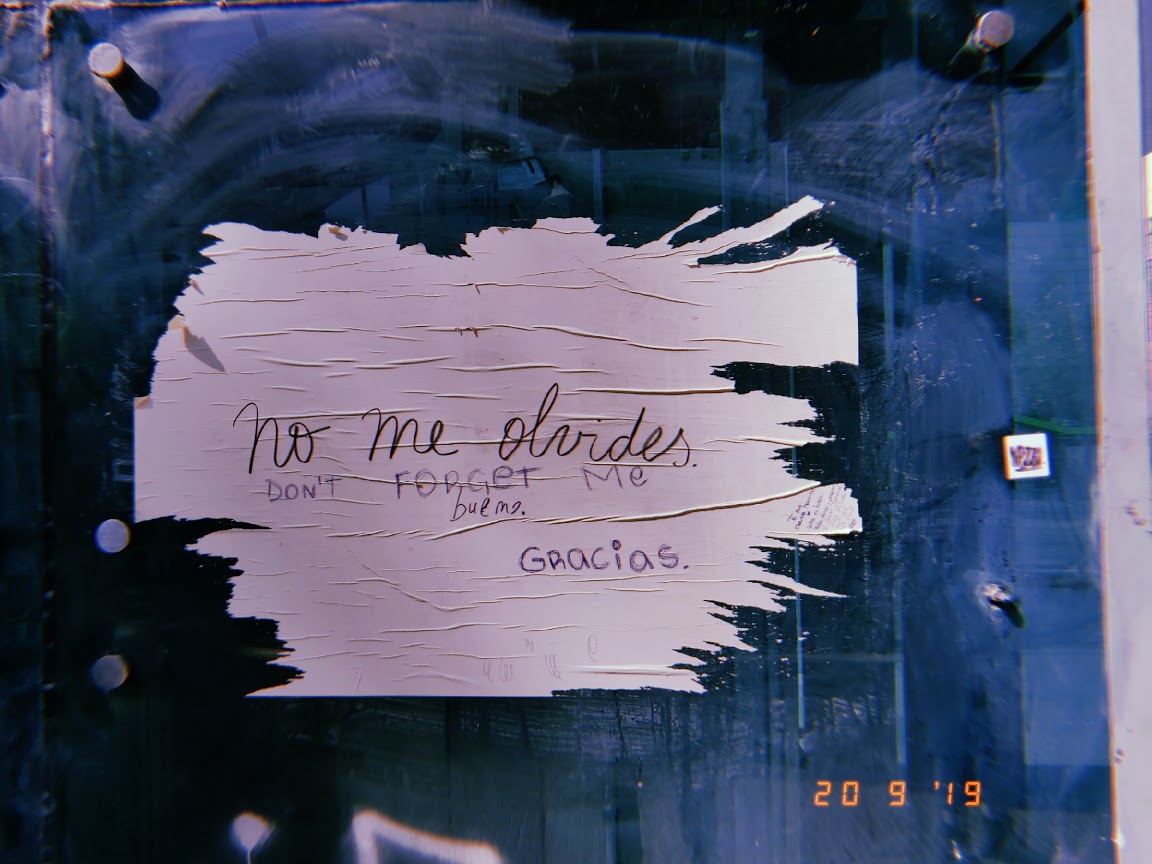 no me olvides.
DON'T FORGET Me
bueno.
GRaciaS.
20 9 '19